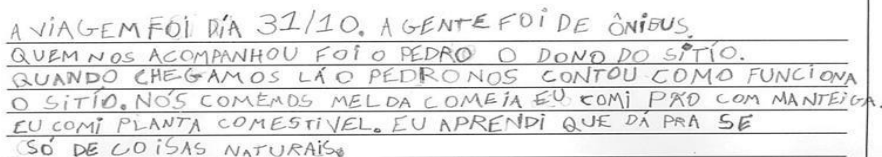 A VIAGEM FOI DÍA 31/10. A GENTE FOI DE ÔNIBUS.
QUEM NOS ACOMPANHOU FOI O PEDRO O DONO DO SÍTIO.
QUANDO CHEGAMOS LÁ O PEDRO NOS CONTOU COMO FUNCIONA
O SITÍO. NÓS COMEMOS MEL DA COMEIA EU COMI PÃO COM MANTEIGA.
EU COMI PLANTA COMESTIVEL. EU APRENDI QUE DÁ PRA SE
SÓ DE COISAS NATURAIS.